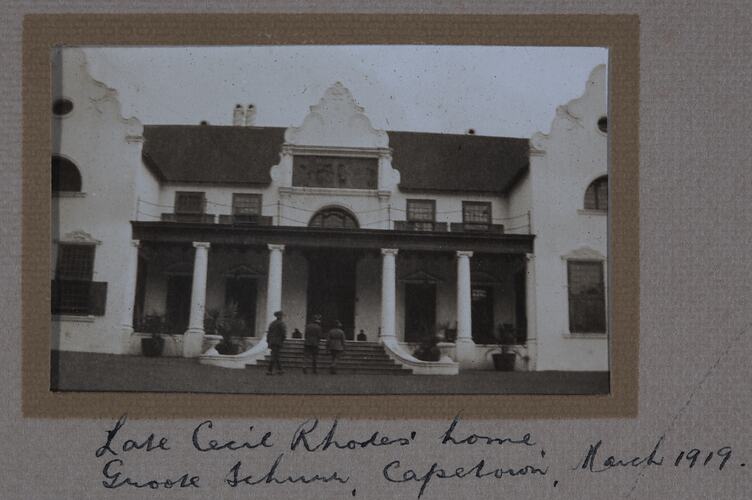 Late Cecil Rhodes' home,
Groote Schuur, Capetown, March 1919.